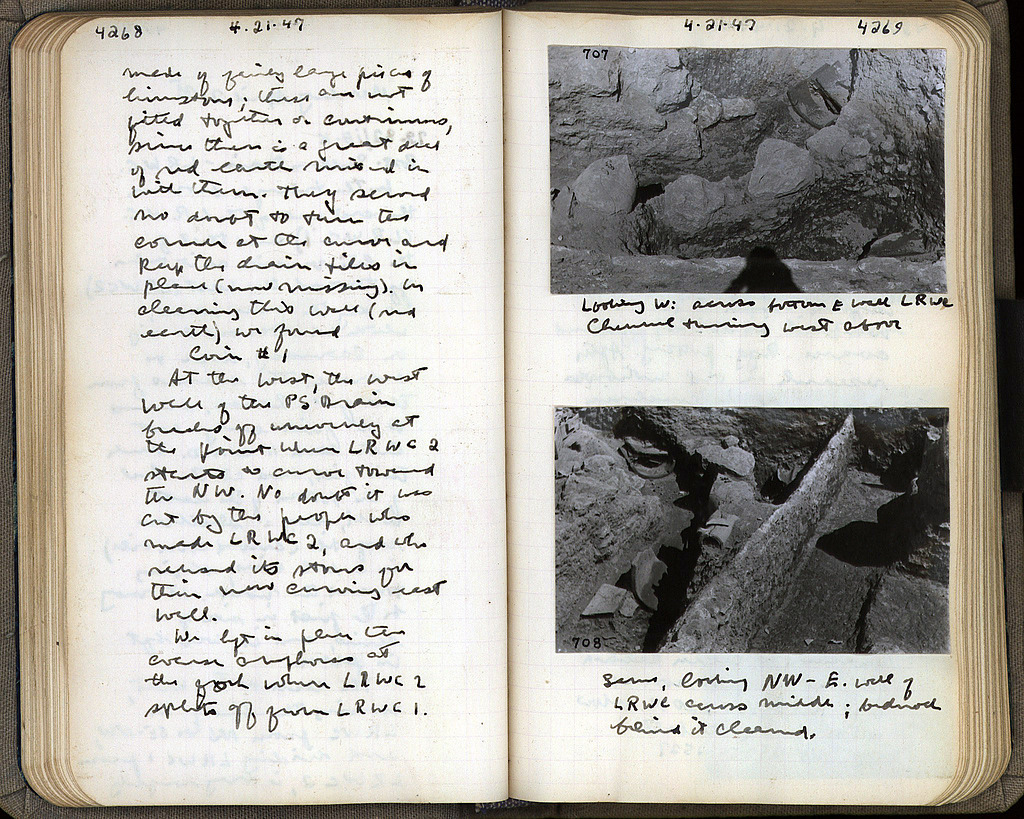 4268 4-21-47
made of fairly large pieces of
limestone; these are not
fitted together or continuous,
since there is a great deal
of red earth mixed in
with them. They served
no doubt to turn the
corner at the curve and
keep the drain tiles in
place (now missing). In
cleaning this wall (red
earth) we found
Coin #1
At the west, the west
wall of the PS Drain
breaks off unevenly at
the point where LRWC 2
starts to curve toward
the NW. No doubt it was
cut by the people who
made LRWC 2, and who
reused its stones for
their new curving east
wall.
We left in place the
coarse amphoras at
the fork where LRWC 2
splits off from LRWC 1.
4-21-47 4269
707
Looking W: across bottom E wall LRWC
Channel turning west above
708
Same, looking NW - E. wall of
LRWC across middle; bedrock
behind it cleared.